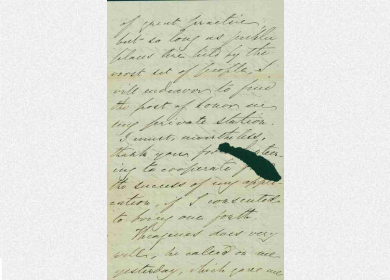 of great practice,
but so long as public
places are held by the
worst set of people, I
will endeavor to find
the post of honor in
my private station.
I must, nevertheless,
thank you for
ing to cooperate
the success of my appli-
cation, if I consented
to bring one forth.
Theagenes does very
well, he called on me
yesterday, which gave me